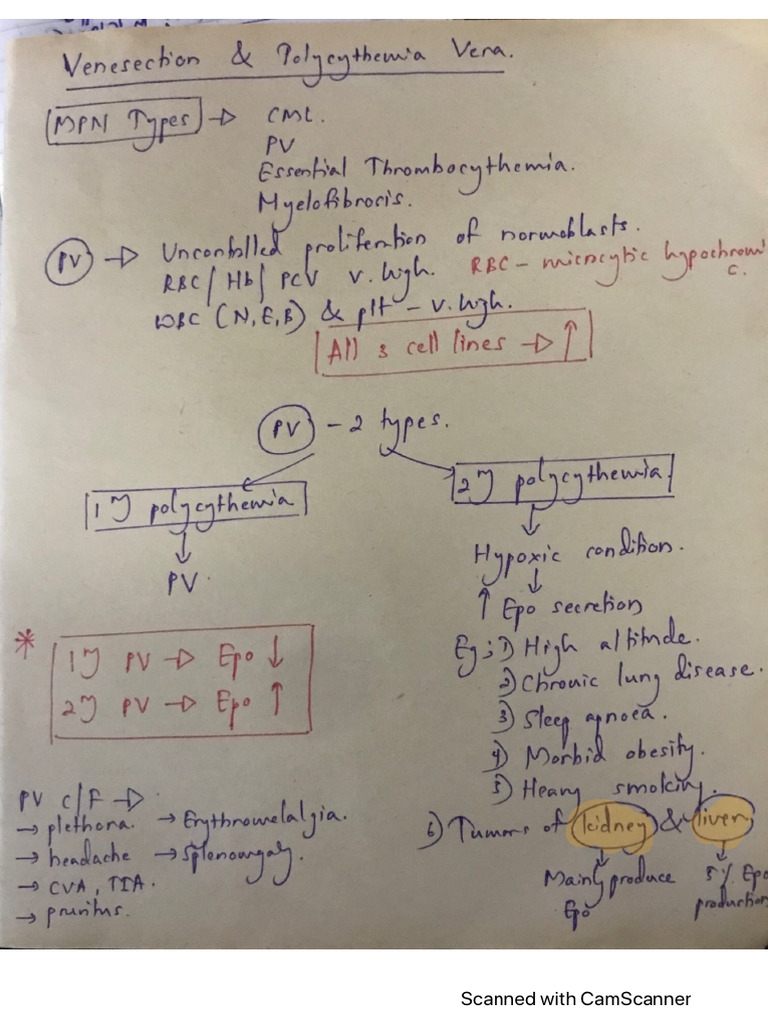 Venesection & Polycythemia Vera.
MPN Types → CML.
PV
Essential Thrombocythemia.
Myelofibrocis.
PV → Uncontrolled proliferation of normoblasts.
RBC / Hb / PCV v. high. RBC – microcytic hypochromi
c.
WBC (N, E, B) & plt – v. high.
All 3 cell lines → ↑
PV – 2 types.
1° polycythemia
2° polycythemia.
↓
PV.
↓
Hypoxic condition.
↓
↑ Epo secretion
* 1° PV → Epo ↓
2° PV → Epo ↑
Eg ; 1) High altitude.
2) Chronic lung disease.
3) Sleep apnoea.
4) Morbid obesity.
5) Heavy smoking.
6) Tumors of kidney & liver
Mainly produce
Epo
5% Epo
production
PV c/F →
→ plethora. → Erythromelalgia.
→ headache → Splenomgaly.
→ CVA, TIA.
→ pruritus.
Scanned with CamScanner